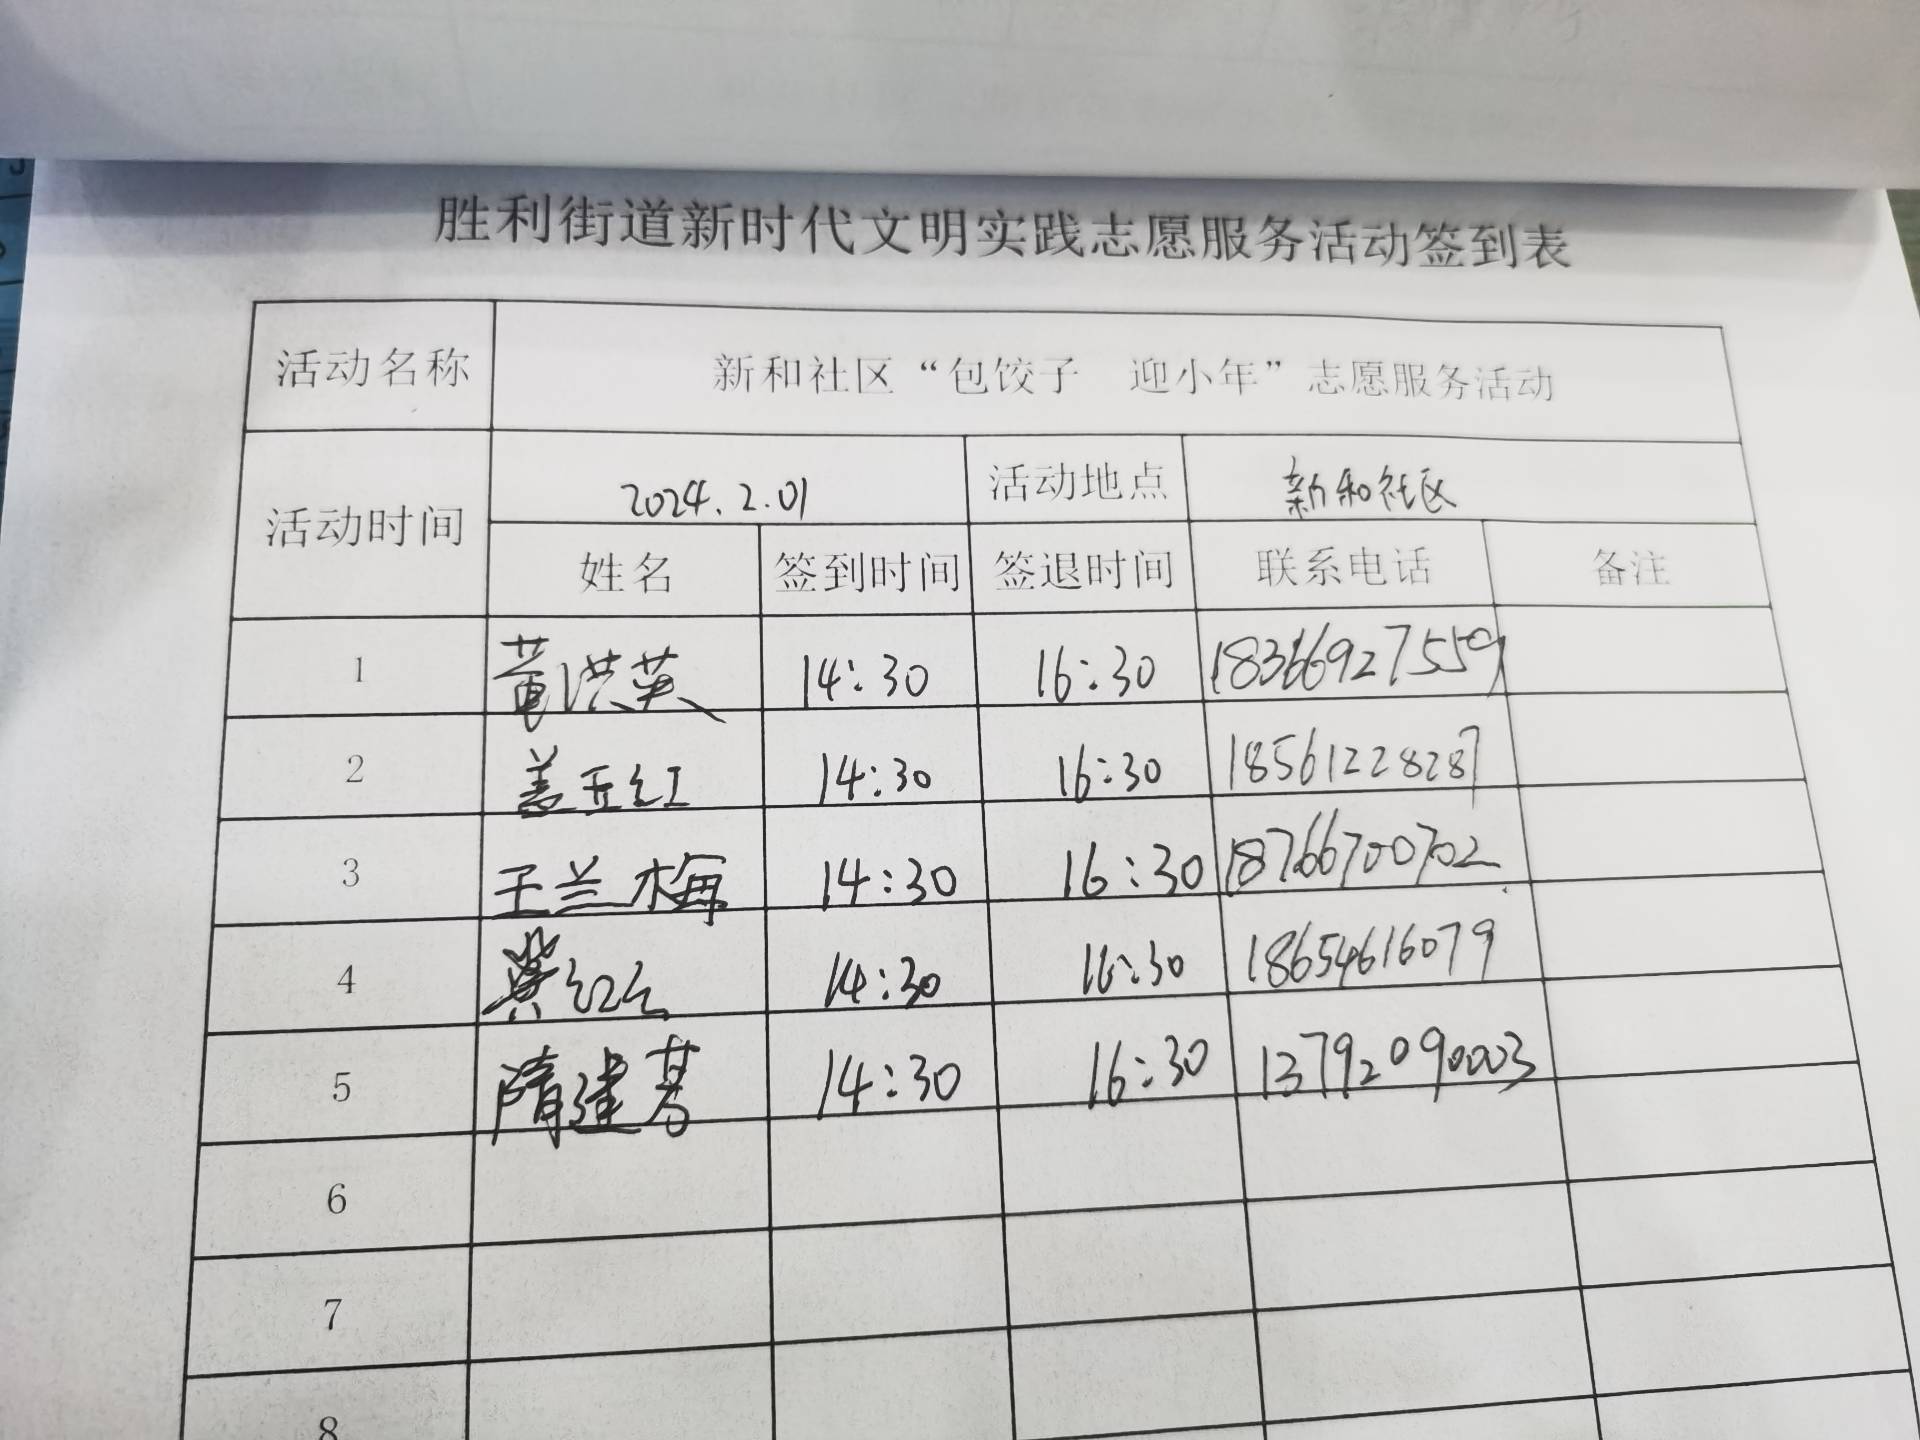 胜利街道新时代文明实践志愿服务活动签到表
活动名称 新和社区“包饺子 迎小年”志愿服务活动
活动时间 2024.2.01 活动地点 新和社区
姓名 签到时间 签退时间 联系电话 备注
1 董洪英 14:30 16:30 18366927559
2 盖玉红 14:30 16:30 18561228287
3 王兰梅 14:30 16:30 18766700702
4 14:30 16:30 18654616079
5 隋建芳 14:30 16:30 13792090003
6
7
8